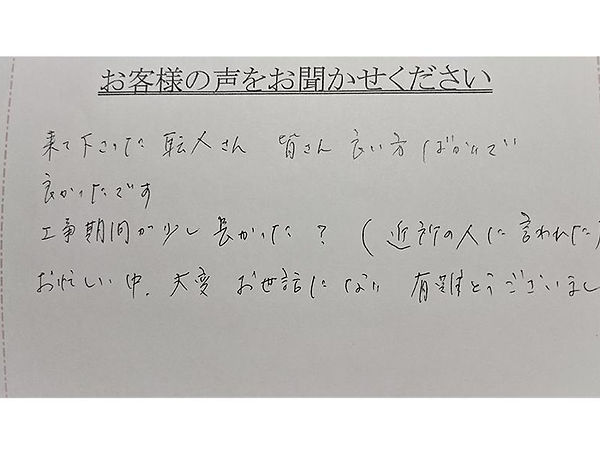 お客様の声をお聞かせください
来て下さった 転人さん 皆さん 良い方ばかりで
良かったです
工事期間が少し長かった？(近所の人に言われた)
お忙しい中、大変 お世話になり 有難とうございまし